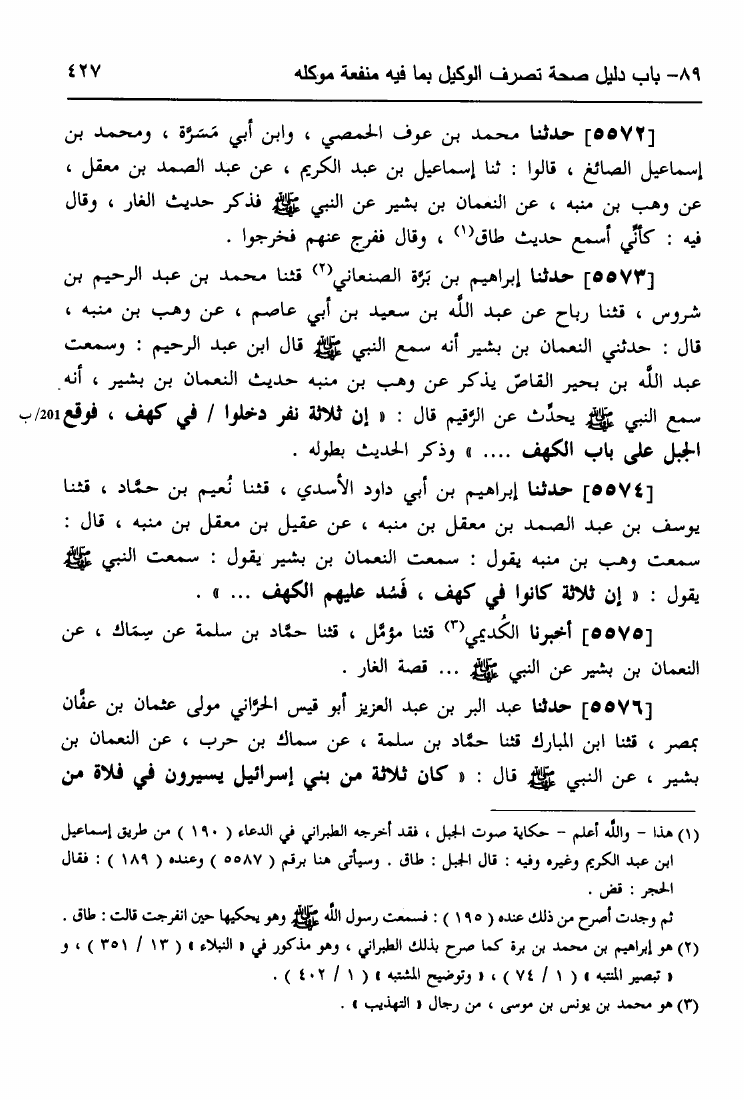 ٨٩- باب دليل صحة تصرف الوكيل بما فيه منفعة موكله ٤٢٧
[٥٥٧٢] حدثنا محمد بن عوف الحمصي ، وابن أبي مَسَرَّة ، ومحمد بن
إسماعيل الصائغ ، قالوا : ثنا إسماعيل بن عبد الكريم ، عن عبد الصمد بن معقل ،
عن وهب بن منبه ، عن النعمان بن بشير عن النبي ﷺ فذكر حديث الغار ، وقال
فيه : كأنِّي أسمع حديث طاق(١) ، وقال ففرج عنهم فخرجوا .
[٥٥٧٣] حدثنا إبراهيم بن بَرَّة الصنعاني(٢) قثنا محمد بن عبد الرحيم بن
شروس ، قثنا رباح عن عبد اللَّه بن سعيد بن أبي عاصم ، عن وهب بن منبه ،
قال : حدثني النعمان بن بشير أنه سمع النبي ﷺ قال ابن عبد الرحيم : وسمعت
عبد اللَّه بن بحير القاصّ يذكر عن وهب بن منبه حديث النعمان بن بشير ، أنه
سمع النبي ﷺ يحدِّث عن الرَّقيم قال : « إن ثلاثة نفر دخلوا / في كهف ، فوقع 201/ب
الجبل على باب الكهف .... » وذكر الحديث بطوله .
[٥٥٧٤] حدثنا إبراهيم بن أبي داود الأسدي ، قثنا نُعيم بن حمَّاد ، قثنا
يوسف بن عبد الصمد بن معقل بن منبه ، عن عقيل بن معقل بن منبه ، قال :
سمعت وهب بن منبه يقول : سمعت النعمان بن بشير يقول : سمعت النبي ﷺ
يقول : « إن ثلاثة كانوا في كهف ، فَسُد عليهم الكهف ... » .
[٥٥٧٥] أخبرنا الكُديمي(٣) قثنا مؤمَّل ، قثنا حمَّاد بن سلمة عن سِمَاك ، عن
النعمان بن بشير عن النبي ﷺ ... قصة الغار .
[٥٥٧٦] حدثنا عبد البر بن عبد العزيز أبو قيس الحرَّاني مولى عثمان بن عفَّان
بمصر ، قثنا ابن المبارك قثنا حمَّاد بن سلمة ، عن سماك بن حرب ، عن النعمان بن
بشير ، عن النبي ﷺ قال : « كان ثلاثة من بني إسرائيل يسيرون في فلاة من
(١) هذا - واللَّه أعلم - حكاية صوت الجبل ، فقد أخرجه الطبراني في الدعاء ( ١٩٠ ) من طريق إسماعيل
ابن عبد الكريم وغيره وفيه : قال الجبل : طاق . وسيأتى هنا برقم ( ٥٥٨٧ ) وعنده ( ١٨٩ ) : فقال
الحجر : قض .
ثم وجدت أصرح من ذلك عنده ( ١٩٥ ) : فسمعت رسول اللَّه ﷺ وهو يحكيها حين انفرجت قالت : طاق .
(٢) هو إبراهيم بن محمد بن برة كما صرح بذلك الطبراني ، وهو مذكور في « النبلاء » ( ١٣ / ٣٥١ ) ، و
« تبصير المنتبه » ( ١ / ٧٤ ) ، « وتوضيح المشتبه » ( ١ / ٤٠٢ ) .
(٣) هو محمد بن يونس بن موسى ، من رجال « التهذيب » .